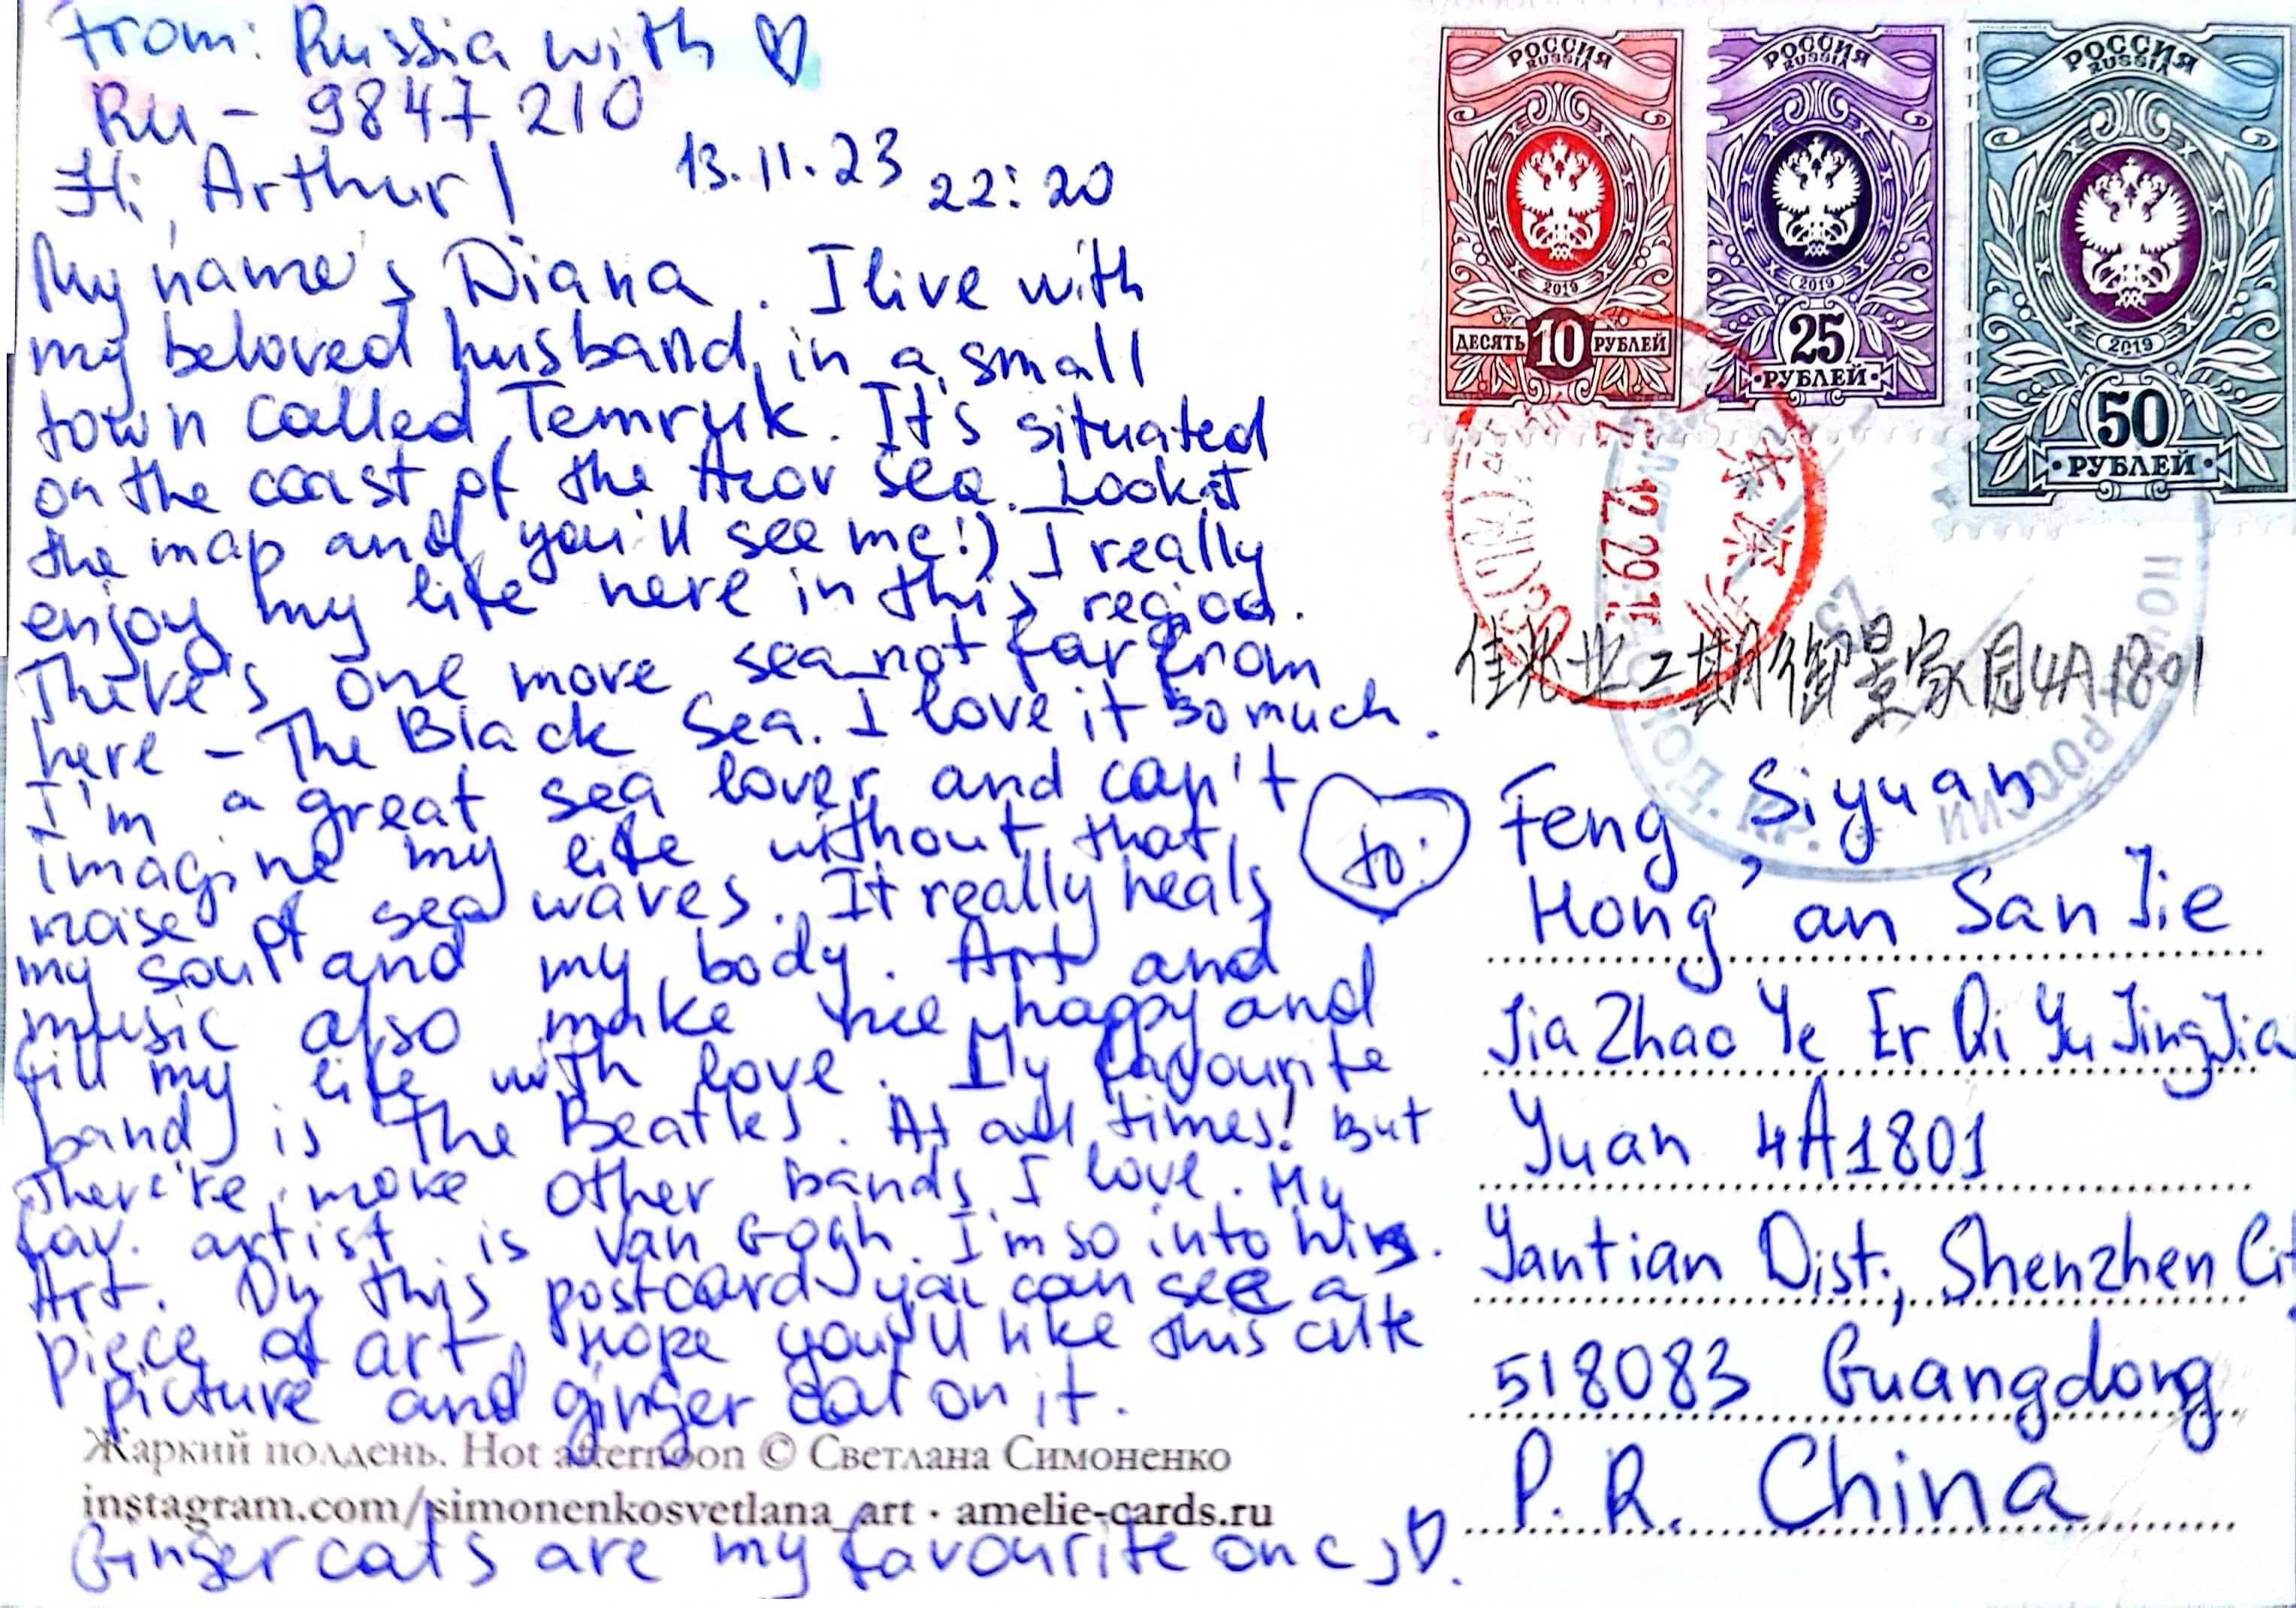 From: Russia with ♡
RU - 9847210
Hi, Arthur!
13.11.23 22:20
My name's Diana. I live with
my beloved husband in a small
town called Temryuk. It's situated
on the coast of the Azov sea. Look at
the map and you'll see me!) I really
enjoy my life here in this region.
There's one more sea not far from
here - The Black Sea. I love it so much.
I'm a great sea lover and can't
imagine my life without that
noise of sea waves. It really heals
my soul and my body. Art and
music also make me happy and
fill my life with love. My favourite
band is The Beatles. At all times! But
there're more other bands I love. My
fav. artist is Van Gogh. I'm so into his
Art. On this postcard you can see a
piece of art, hope you'll like this cute
picture and ginger cat on it.
Жаркий полдень. Hot afternoon © Светлана Симоненко
instagram.com/simonenkosvetlana_art · amelie-cards.ru
Ginger cats are my favourite ones ♡.
РОССИЯ
RUSSIA
2019
ДЕСЯТЬ 10 РУБЛЕЙ
РОССИЯ
RUSSIA
2019
25
РУБЛЕЙ
РОССИЯ
RUSSIA
2019
50
РУБЛЕЙ
ПОЧТА РОССИИ
佳兆业二期御景家园4A1801
to:
Feng, Siyuan
Hong'an San Jie
Jia Zhao Ye Er Qi Yu Jing Jia
Yuan 4A1801
Yantian Dist., Shenzhen Cit
518083 Guangdong
P. R. China